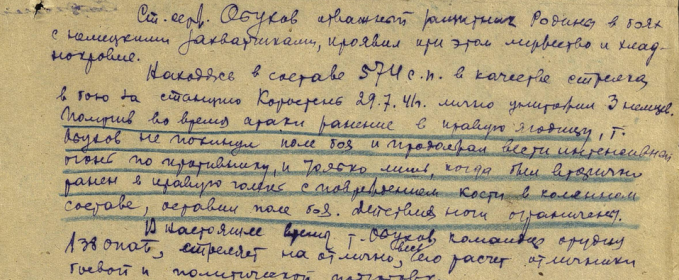 Ст. серж. Обухов отважный защитник Родины в боях
с немецкими захватчиками, проявил при этом мужество и хлад-
нокровие.
Находясь в составе 574 с.п. в качестве стрелка
в бою за станцию Коростень 29.7.41г. лично уничтожил 3 немцев.
Получив во время атаки ранение в правую ягодицу, т.
Обухов не покинул поле боя и продолжал вести интенсивный
огонь по противнику, и только лишь, когда был вторично
ранен в правую голень с повреждением кости в коленном
составе, оставил поле боя. Действия ноги ограничены.
В настоящее время т. Обухов командир орудия
138 опаб, стреляет на отлично, весь его расчет отличники
боевой и политической подготовки